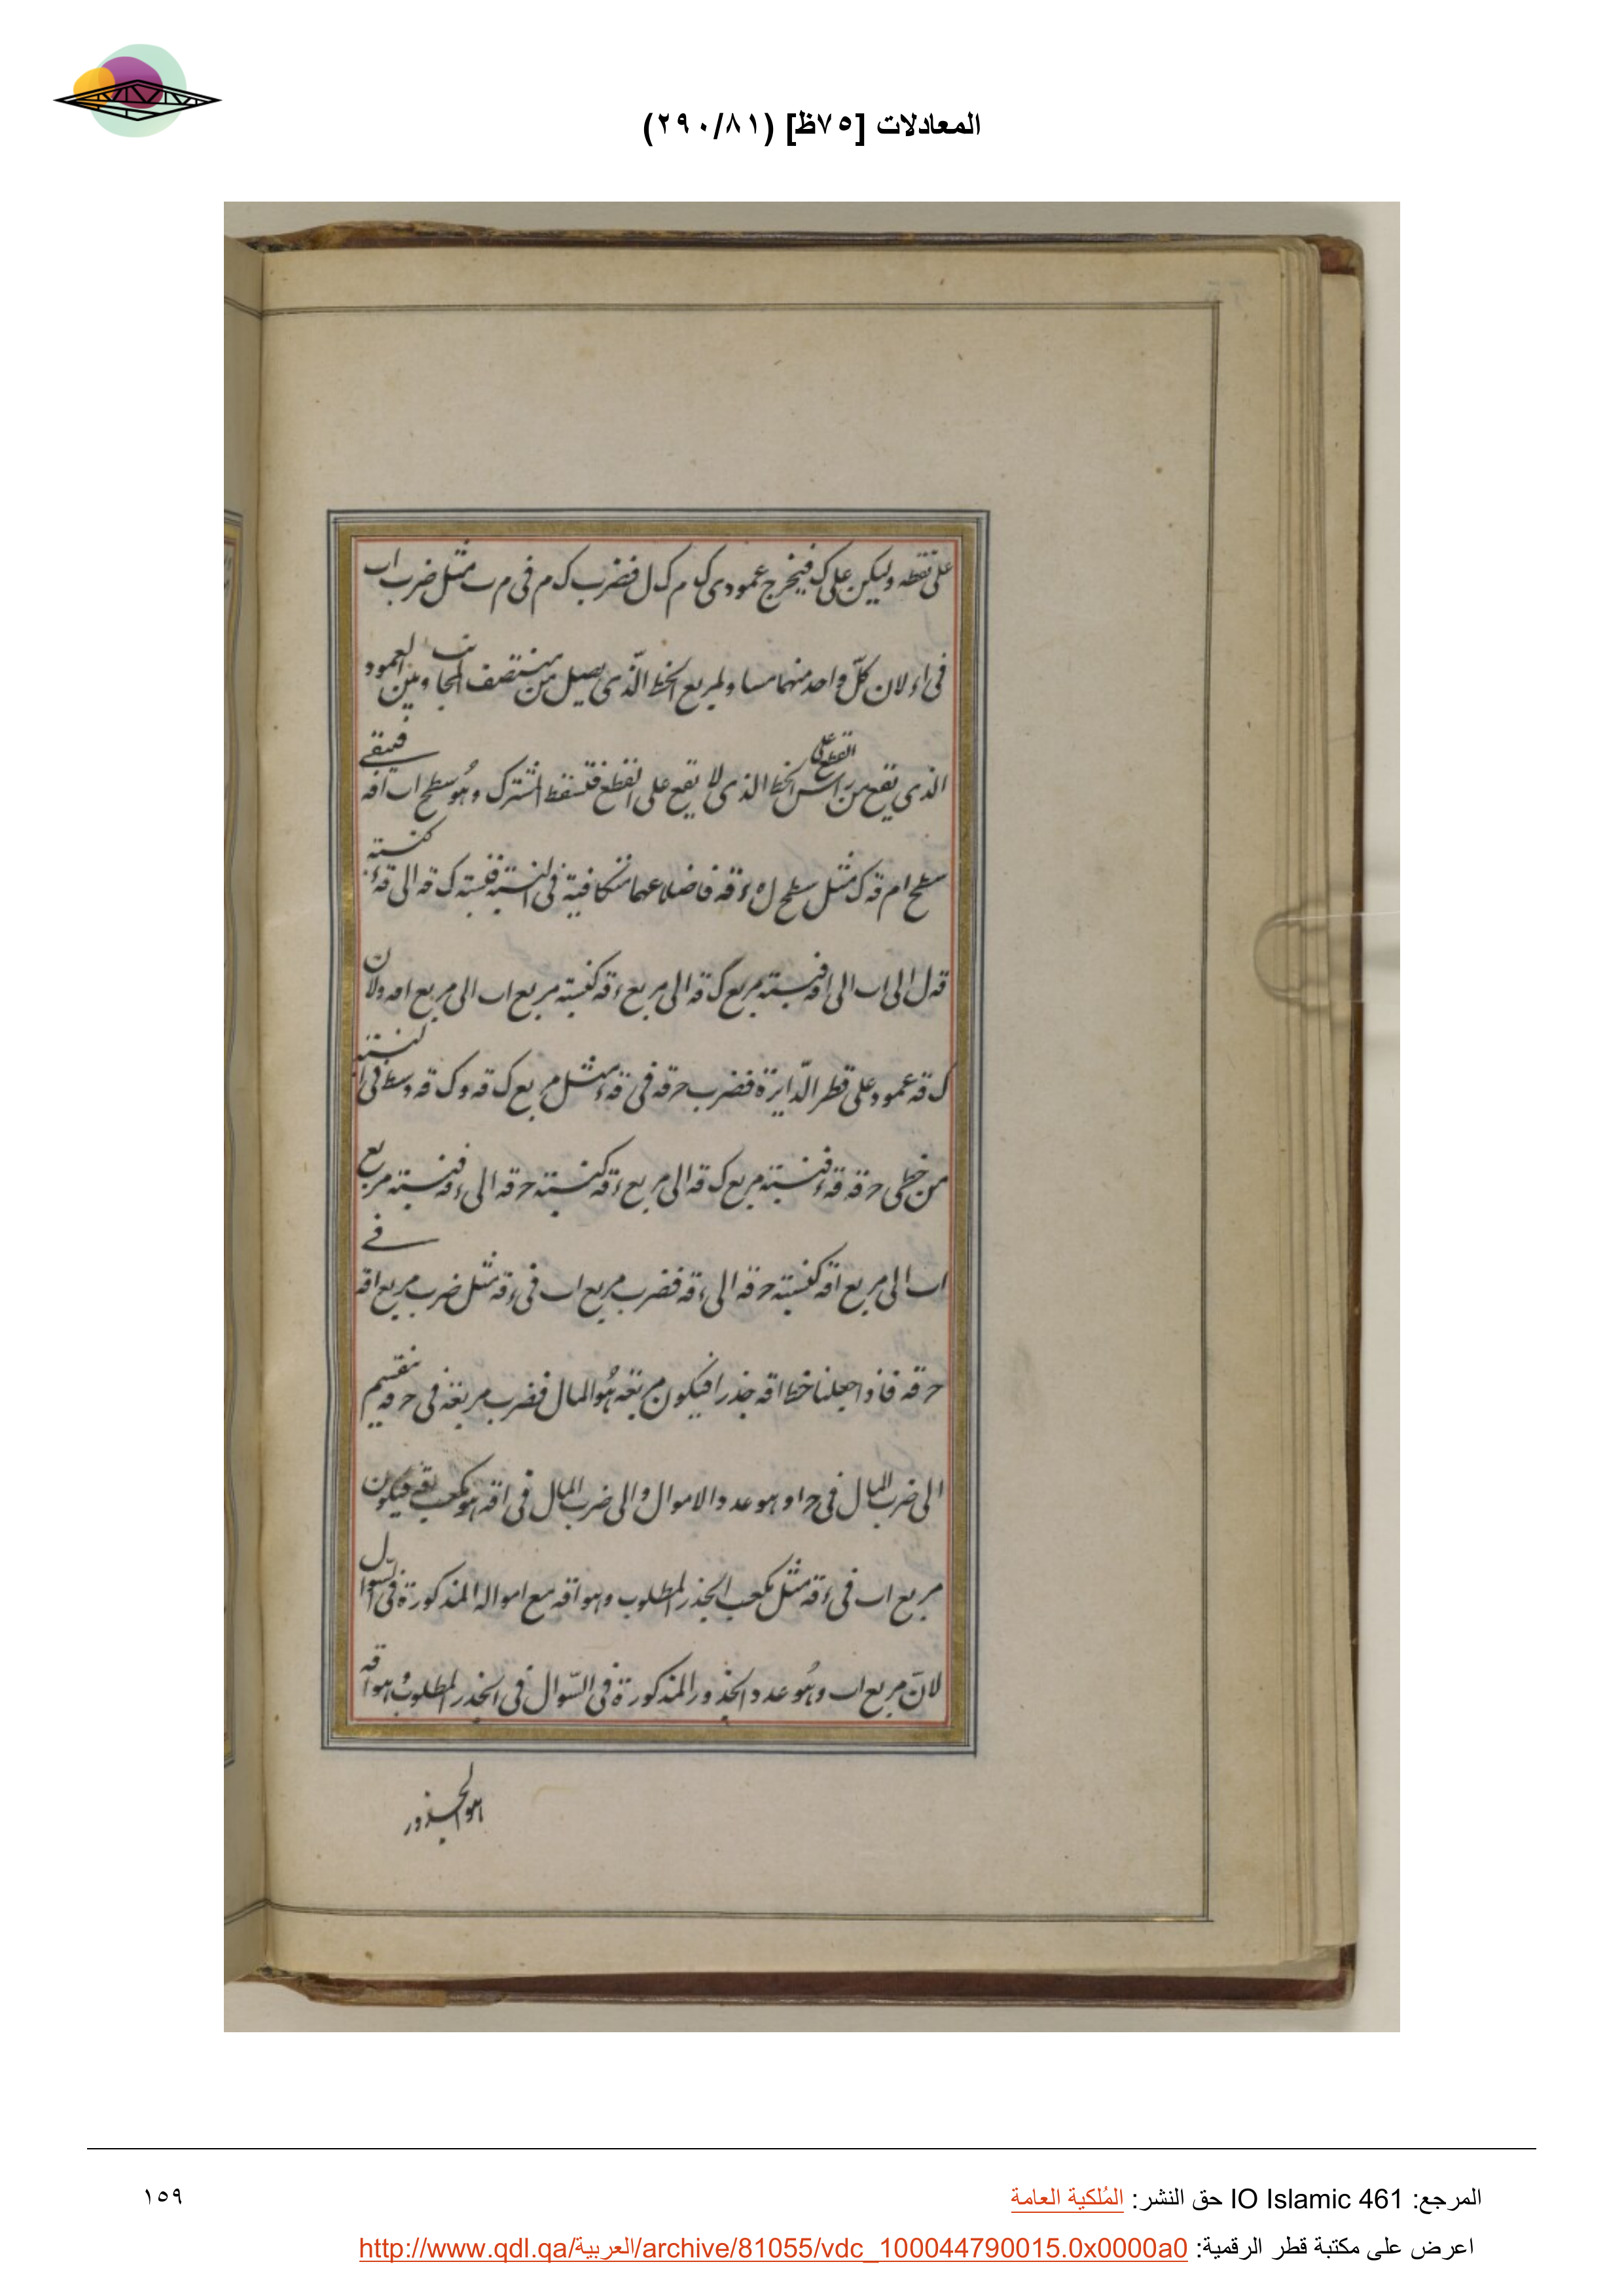 المعادلات [٧٥ظ] (٢٩٠/٨١)
على نقطه وليكن على ك فيخرج عمودى ك م ك ل فضرب ك م فى م ب مثل ضرب اب
فى اء لان كلّ واحد منهما مساو لمربع الخط الّذى يصل من منتصف المجانب وبين العمود
الذى يقع من راس الخط الذى لا يقع على القطع فتسقط المشترك وهُو سطح اب اقه فيبقى
القطع على
سطح ام قه ك مثل سطح ل ه ء قه فاضلاعهما متكافية فى النسبة فنسبته ك قه الى قه ء كنسبته
قه ل الى اب الى اقه فنسبته مربع ك قه الى مربع ء قه كنسبته مربع اب الى مربع اقه ولان
ك قه عمود على قطر الدّايرة فضرب حرقه فى قه ء مثل مربع ك قه وك قه وسط فى النسبته
من خطى حرقه قه ء فنسبته مربع ك قه الى مربع ء قه كنسبته حرقه الى ء قه فنسبته مربع
اب الى مربع اقه كنسبته حرقه الى ء قه فضرب مربع اب فى ء قه مثل ضرب مربع اقه فى
حرقه فاذا جعلنا خط اقه جذرا فيكون مربعه هُو المال فضرب مربعه فى حرقه ينقسم
الى ضرب المال فى حراو هو عدد الاموال والى ضرب المال فى اقه هو مكعب يقى فيكون
مربع اب فى ء قه مثل مكعب الجذر المطلوب وهو اقه مع امواله المذكورة فى السّوال
لانّ مربع اب وهُو عدد الجذور المذكورة فى السّوال فى الجذر المطلوب وهو اقه
هو الجذور
المرجع: IO Islamic 461 حق النشر: المُلكية العامة
١٥٩
اعرض على مكتبة قطر الرقمية: http://www.qdl.qa/العربية/archive/81055/vdc_100044790015.0x0000a0